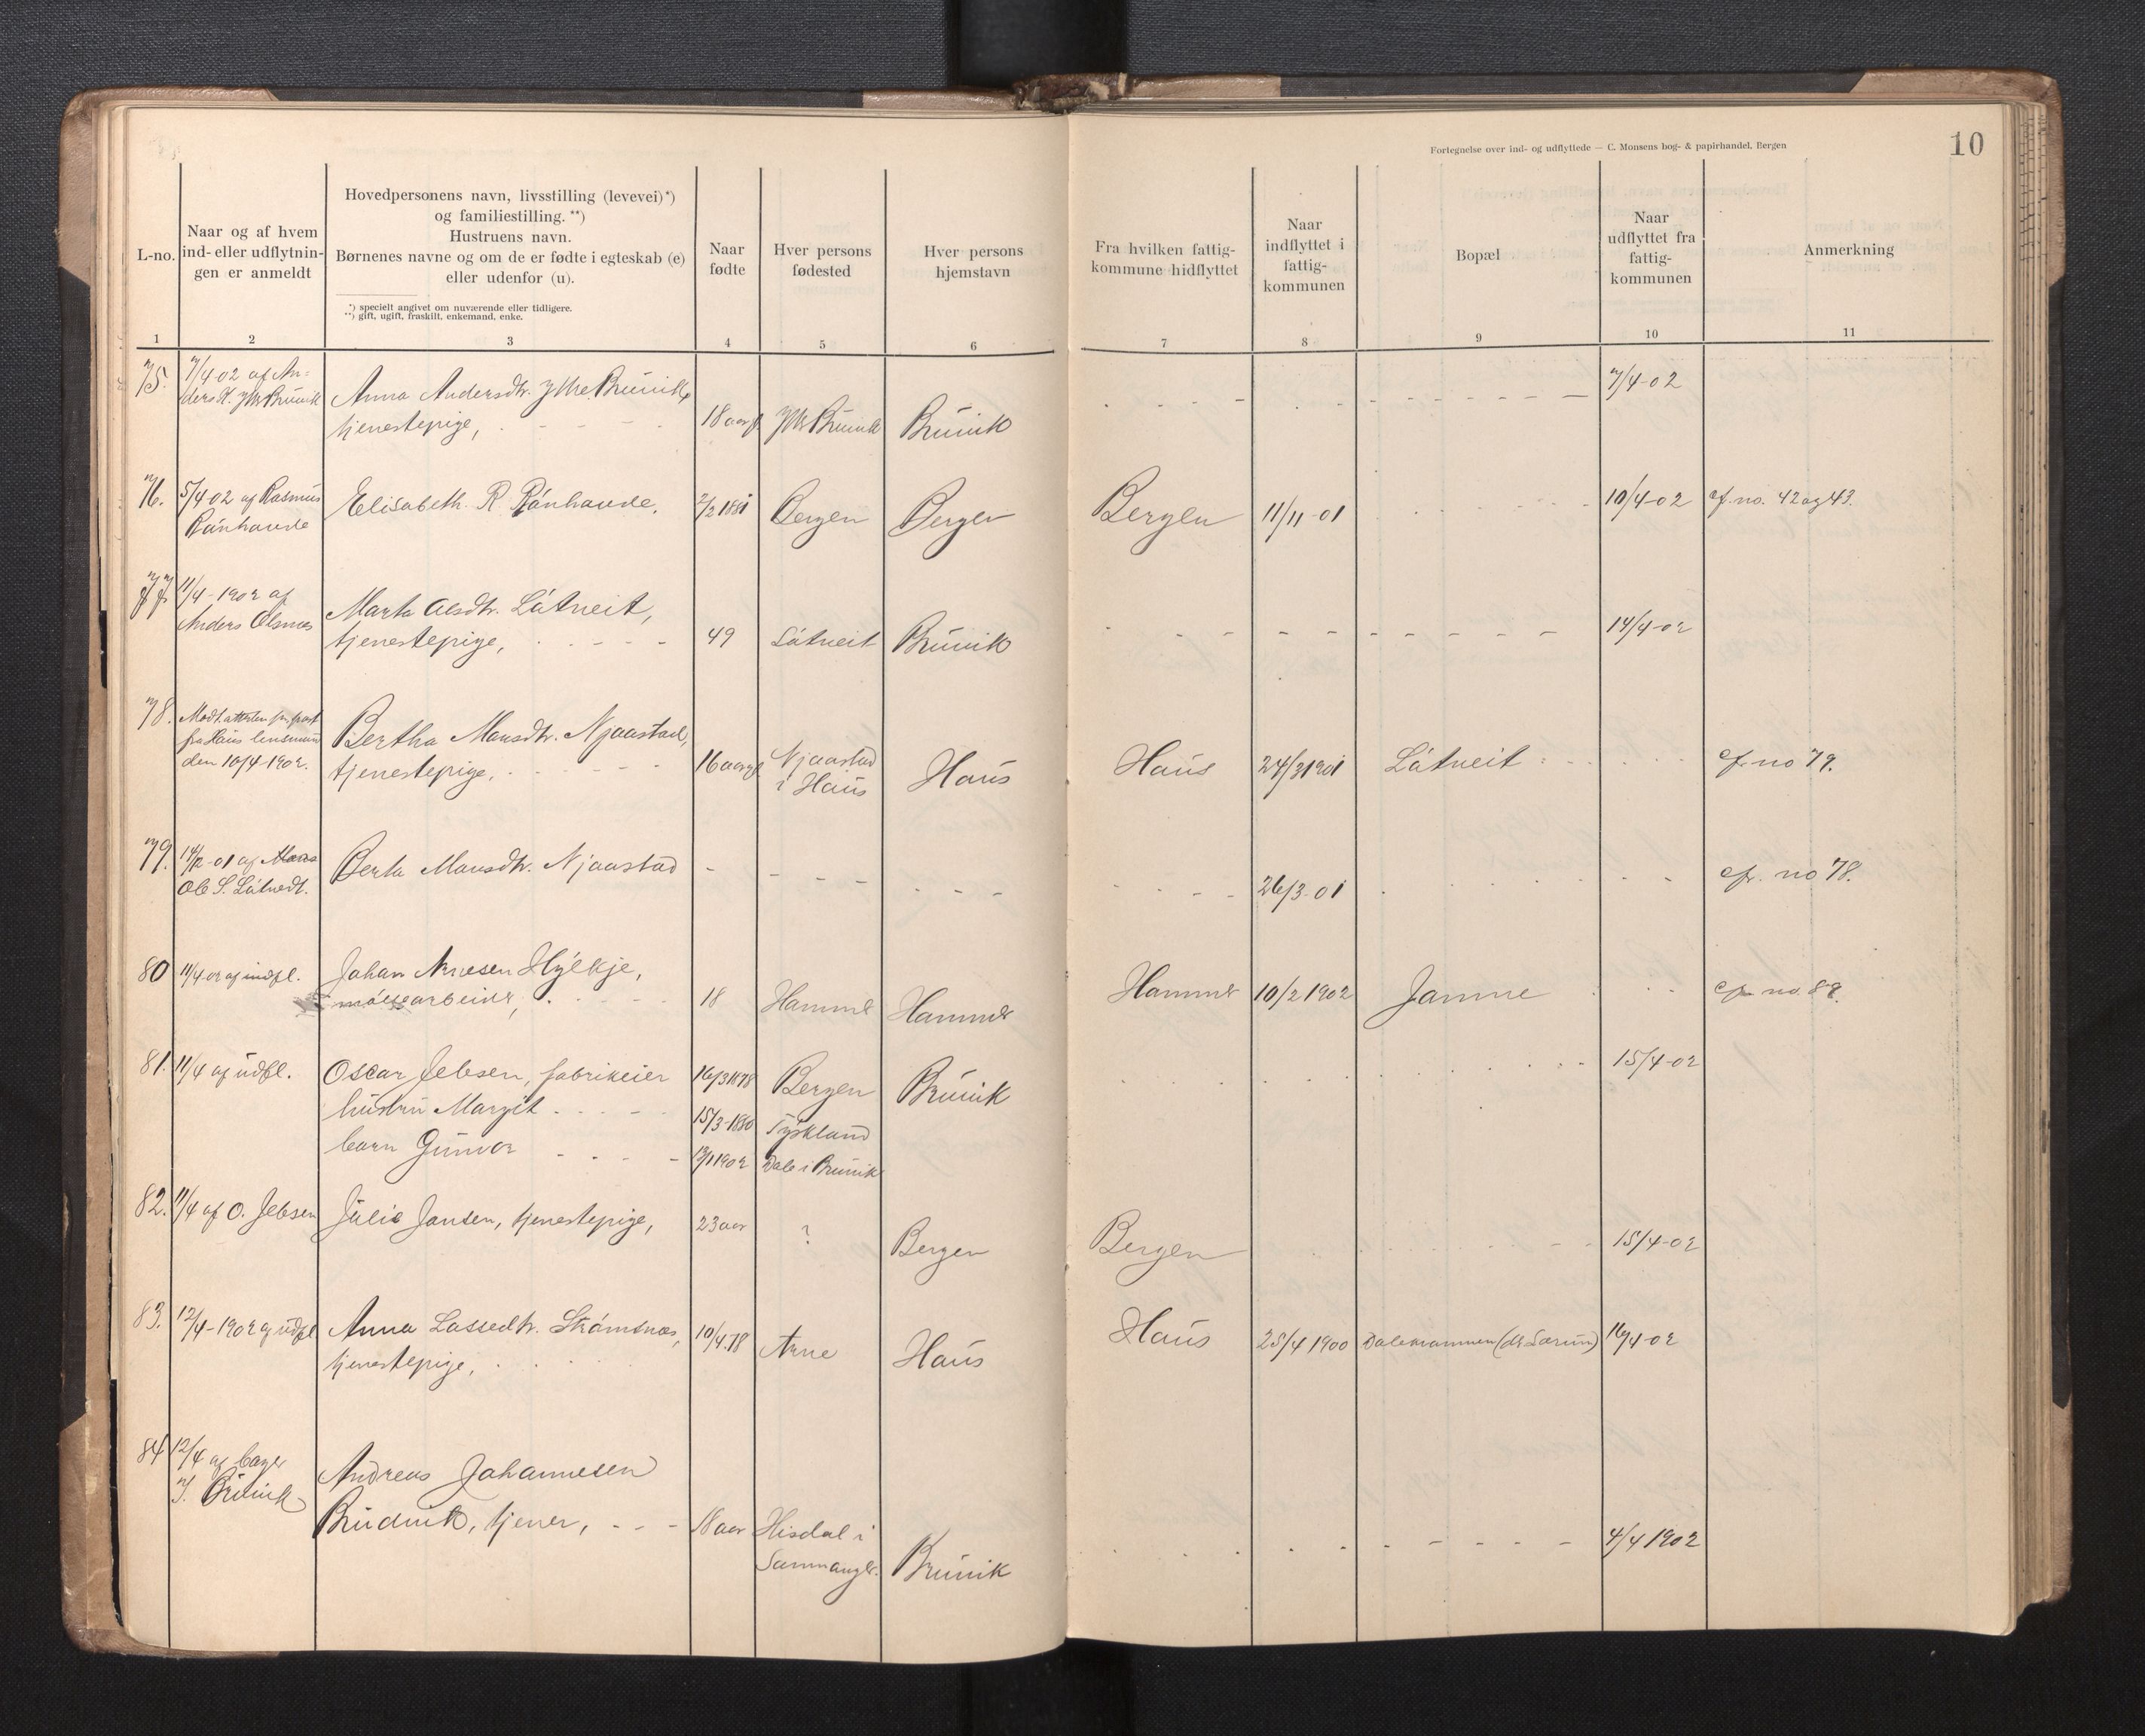 Fortegnelse over ind- og udflyttede — C. Monsens bog- & papirhandel, Bergen
10
L-no.
Naar og af hvem
ind- eller udflytnin-
gen er anmeldt
Hovedpersonens navn, livsstilling (levevei)*)
og familiestilling. **)
Hustruens navn.
Børnenes navne og om de er fødte i egteskab (e)
eller udenfor (u).
*) specielt angivet om nuværende eller tidligere.
**) gift, ugift, fraskilt, enkemand, enke.
Naar
fødte
Hver persons
fødested
Hver persons
hjemstavn
Fra hvilken fattig-
kommune hidflyttet
Naar
indflyttet i
fattig-
kommunen
Bopæl
Naar
udflyttet fra
fattig-
kommunen
Anmerkning
1 2 3 4 5 6 7 8 9 10 11
75. 7/4-02 af An-
ders Ytre Bruvik
Anna Andersdtr. Ytre Bruvik,
tjenestepige, 18 aar Ytre Bruvik Bruvik 7/4-02
76. 5/4 02 af Rasmus
Rånhaude
Elisabeth R. Rånhaude, 2/2 1881 Bergen Bergen Bergen 11/11-01 10/4-02 cf. no. 42 og 43.
77. 11/4-1902 af
Anders Olsnes
Marta Olsdtr. Låtveit,
tjenestepige, 49 Låtveit Bruvik 14/4-02
78. Modt. attesten pr. post
fra Haus lensmand
den 10/4-1902.
Bertha Monsdtr. Njaastad,
tjenestepige, 16 aar Njaastad
i Haus Haus Haus 24/3 1901 Låtveit cf. no 79.
79. 14/2-01 af Mons
Ole S. Låtveit.
Berta Monsdtr. Njaastad 26/3-01 cfr. no 78.
80 11/4 02 af indfl.
Johan Arnesen Hylkje,
møllearbeider, 18 Hammer Hammer Hammer 10/2 1902 Jamne
81. 11/4 af udfl.
Oscar Jebsen, fabrikeier 16/3 1878 Bergen Bruvik 15/4-02
hustru Margit 15/3-1880 Tyskland
barn Gunvor 1902 Dale i Bruvik
82. 11/4 af O. Jebsen
Julie Jansen, tjenestepige, 23 aar ? Bergen Bergen 15/4-02
83. 12/4-1902 af udfl.
Anna Lassedtr. Strømsnæs, 10/4.78 Arne Haus Haus 25/4 1900 16/4-02
tjenestepige,
84 12/4 af bager
J. Bruvik
Andreas Johannesen
Bruvik, tjener, 18 aar Hisdal i
Samnanger. Bruvik 4/4 1902